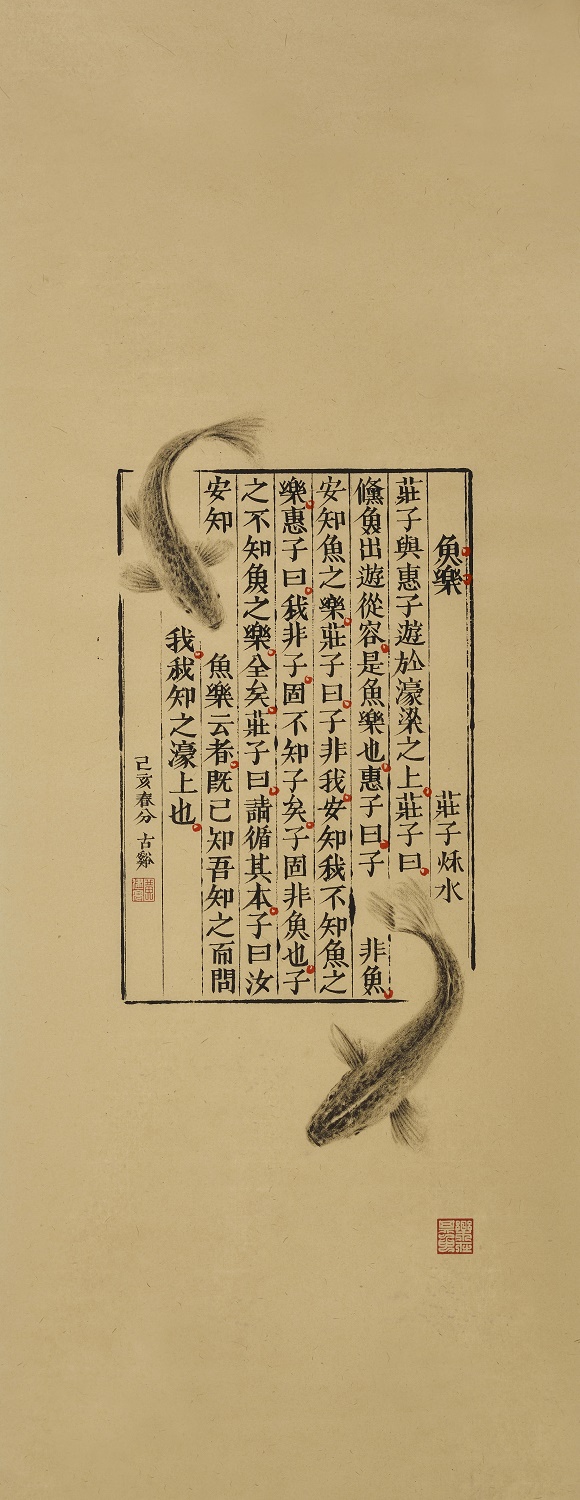 魚樂 莊子秌水
莊子與惠子遊於濠梁之上莊子曰
鯈魚出遊從容是魚樂也惠子曰子 非魚
安知魚之樂莊子曰子非我安知我不知魚之
樂惠子曰我非子固不知子矣子固非魚也子
之不知魚之樂全矣莊子曰請循其本子曰汝
安知 魚樂云者既已知吾知之而問
我我知之濠上也
己亥春分 古谿